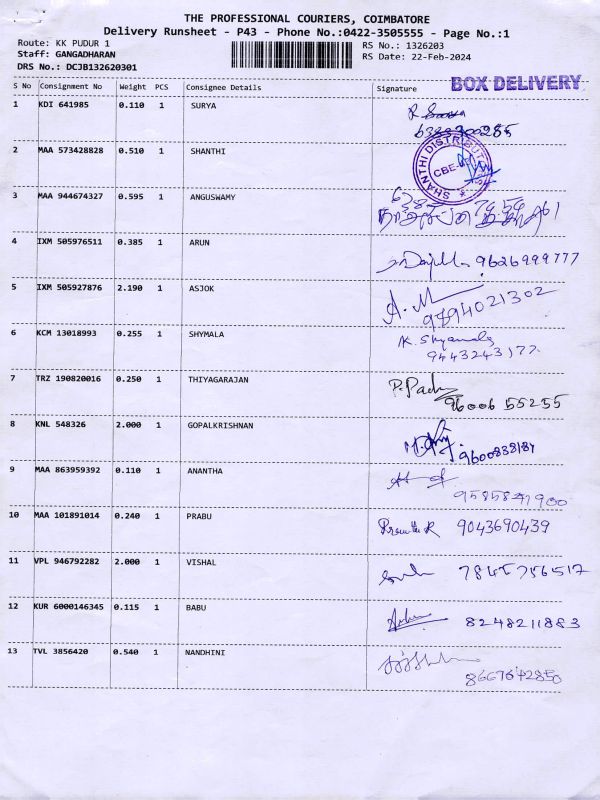 THE PROFESSIONAL COURIERS, COIMBATORE
Delivery Runsheet - P43 - Phone No.:0422-3505555 - Page No.:1
Route: KK PUDUR 1
Staff: GANGADHARAN
DRS No.: DCJB132620301
RS No.: 1326203
RS Date: 22-Feb-2024
BOX DELIVERY
S No Consignment No Weight PCS Consignee Details Signature
1 KDI 641985 0.110 1 SURYA
2 MAA 573428828 0.510 1 SHANTHI
SHANTHI DISTRIBUT
CBE-
3 MAA 944674327 0.595 1 ANGUSWAMY
4 IXM 505976511 0.385 1 ARUN 9626999777
5 IXM 505927876 2.190 1 ASJOK A. M
9894021302
6 KCM 13018993 0.255 1 SHYMALA K. Shyamala
9443243177
7 TRZ 190820016 0.250 1 THIYAGARAJAN
96006 55255
8 KNL 548326 2.000 1 GOPALKRISHNAN
9600838187
9 MAA 863959392 0.110 1 ANANTHA
10 MAA 101891014 0.240 1 PRABU 9043690439
11 VPL 946792282 2.000 1 VISHAL 7845756517
12 KUR 6000146345 0.115 1 BABU 8248211883
13 TVL 3856420 0.540 1 NANDHINI
8667642850